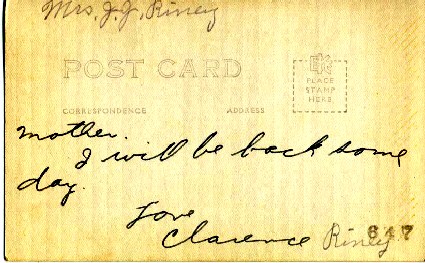 Mrs. J. J. Riney
POST CARD
EKC
PLACE
STAMP
HERE
CORRESPONDENCE ADDRESS
mother.
I will be back some
day.
Love
Clarence Riney
647